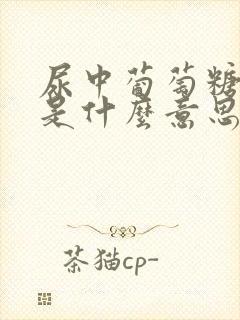 尿中葡萄糖
是什麼意思
茶猫cp-